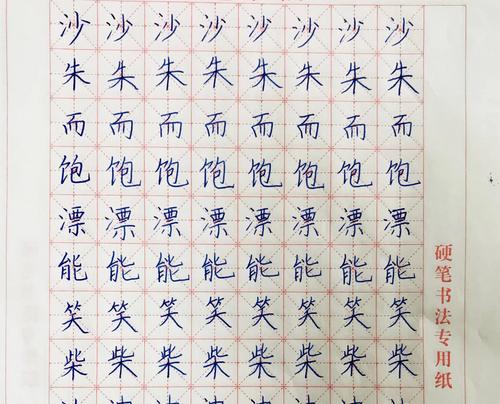 沙沙沙沙沙沙沙沙
朱朱朱朱朱朱朱朱
而而而而而而而而
饱饱饱饱饱饱饱饱
漂漂漂漂漂漂漂漂
能能能能能能能能
笑笑笑笑笑笑笑笑
柴柴柴柴柴柴柴柴
硬笔书法专用纸